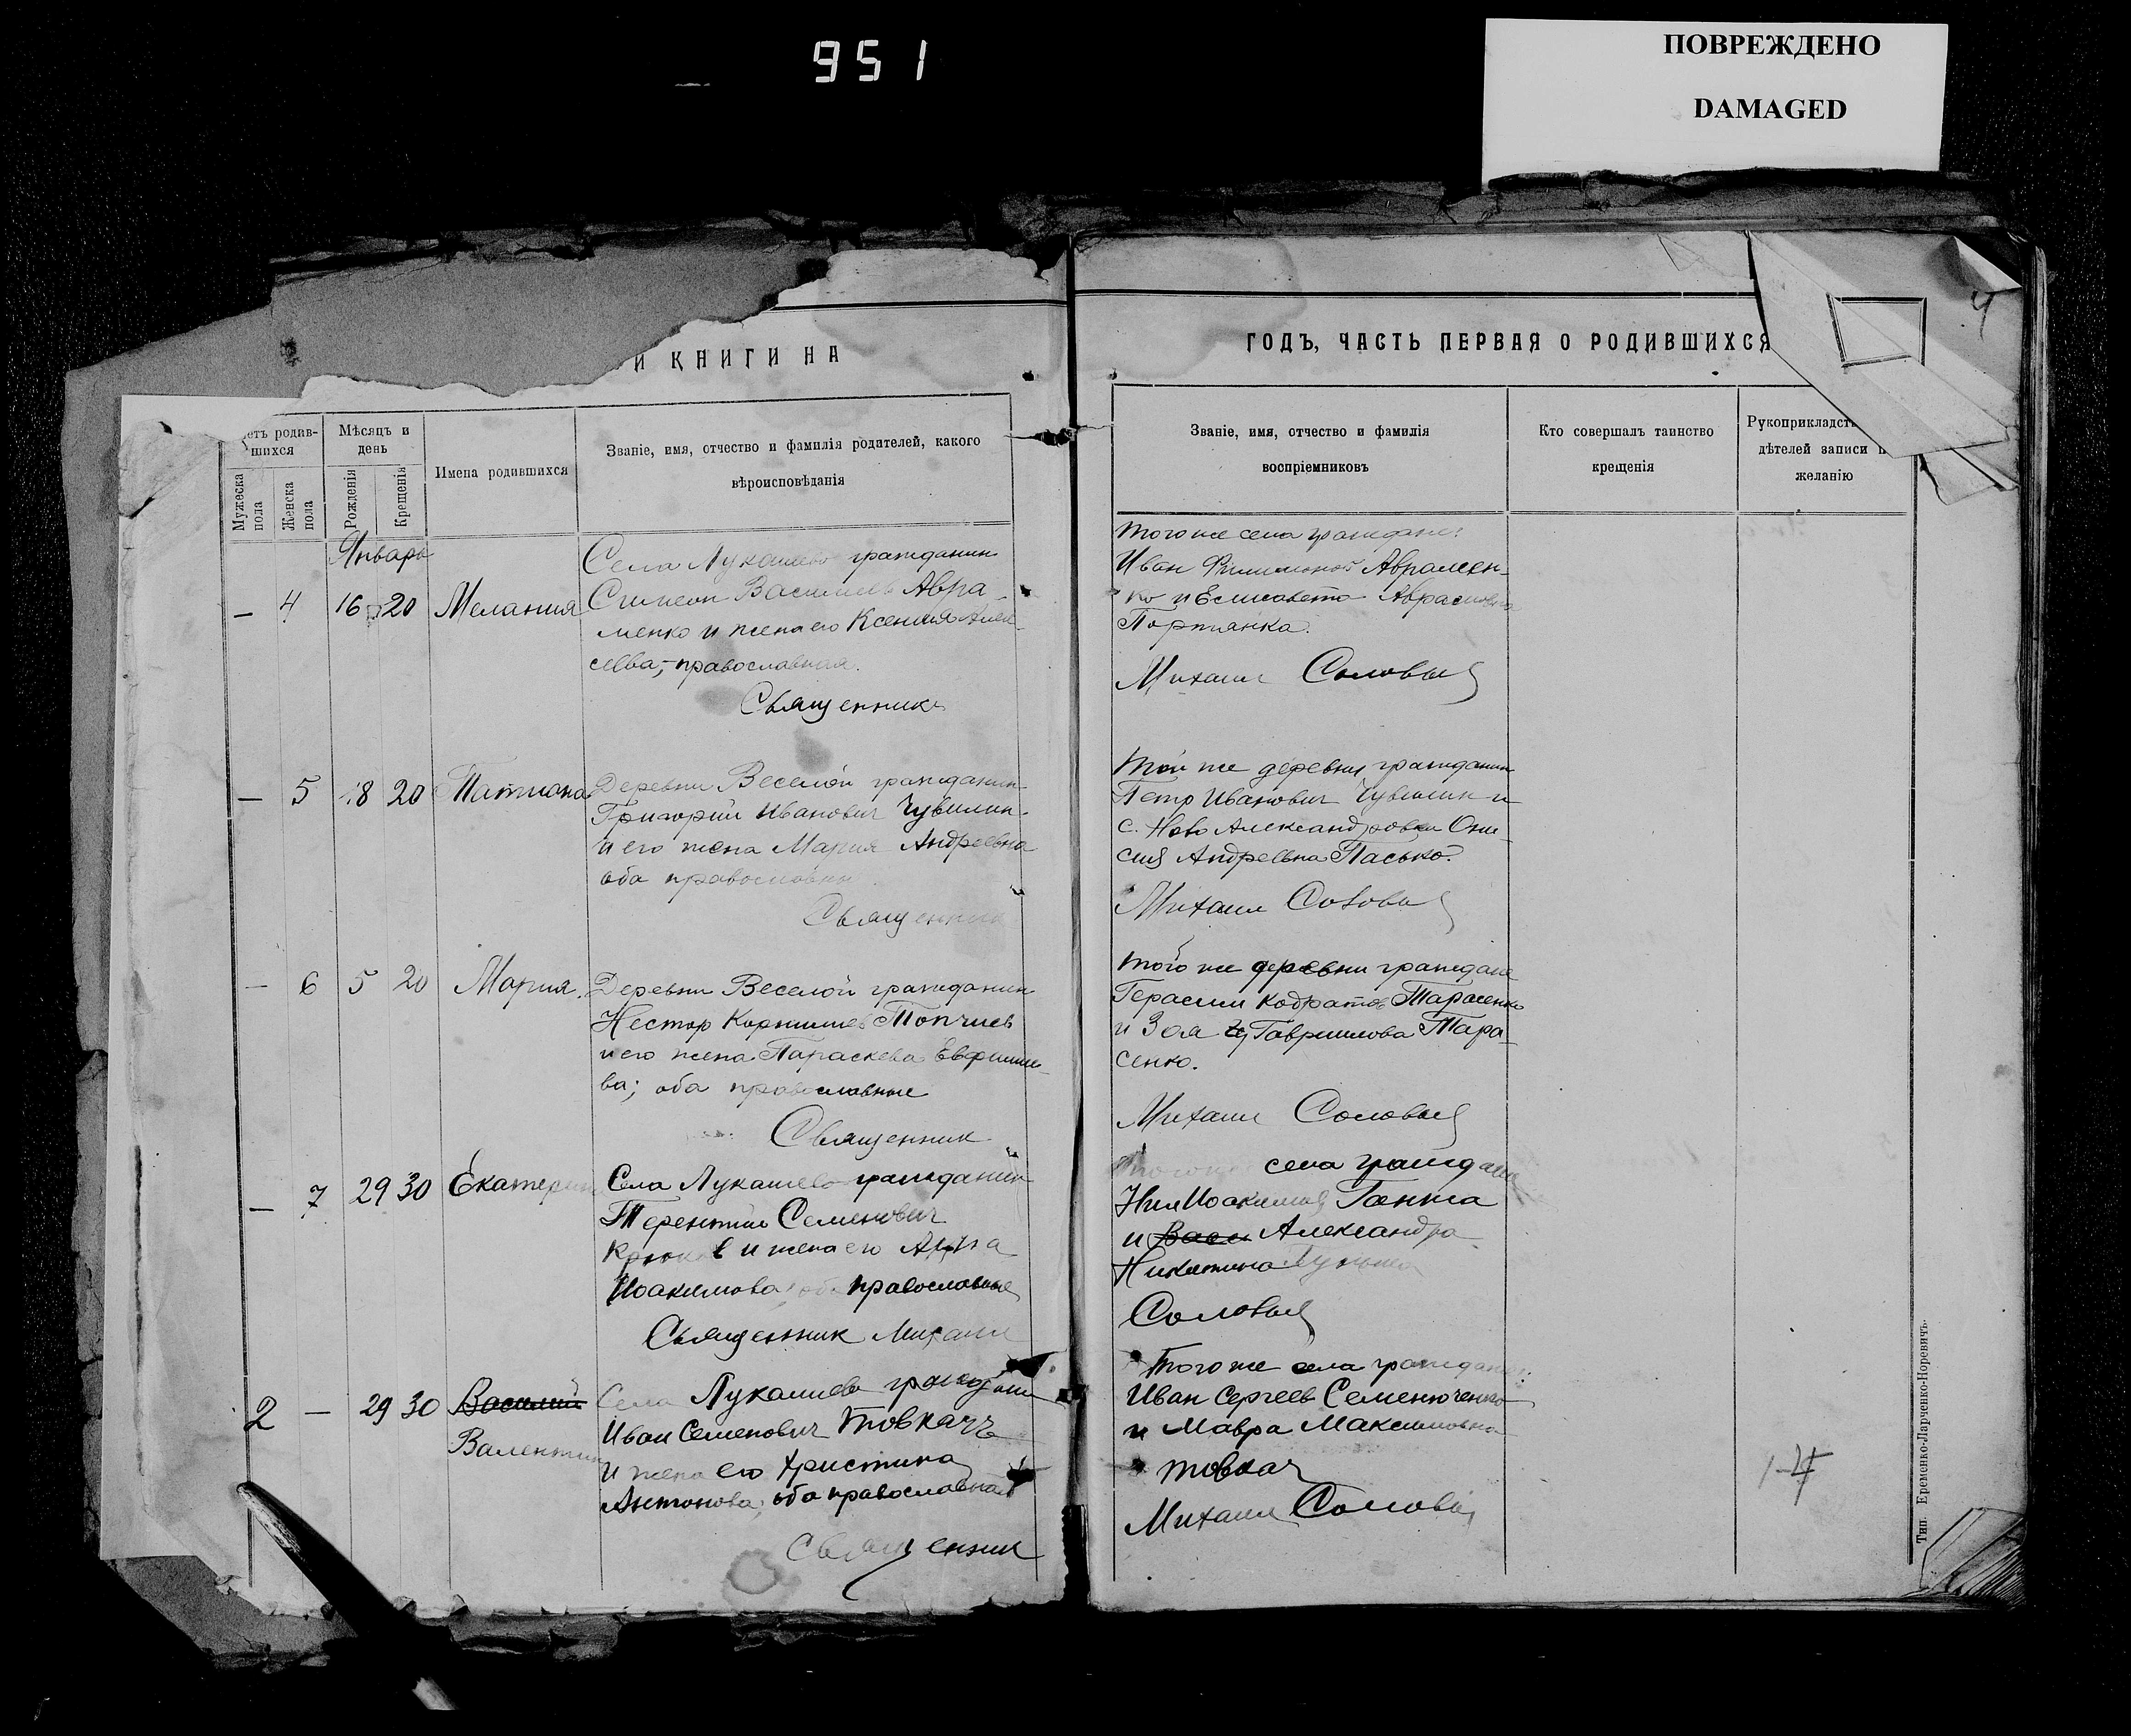 951
ПОВРЕЖДЕНО
DAMAGED
И КНИГИ НА
етъ родив-
шихся
Мужеска пола
Женска пола
Мѣсяцъ и
день
Рожденія
Крещенія
Имена родившихся
Званіе, имя, отчество и фамилія родителей, какого
вѣроисповѣданія
Январь
— 4 16 20 Мелания
Села Лукашево гражданин
Симеон Васильев Авра-
менко и жена его Ксения Алек-
сеева, православная.
Священник
— 5 18 20 Татиана
Деревни Веселой гражданин
Григорий Иванович Чувилин
и его жена Мария Андреевна
оба православны
Священник
— 6 5 20 Мария.
Деревни Веселой гражданин
Нестор Топчиев
и его жена Параскева Евфимие-
ва; оба православные
Священник
— 7 29 30 Екатерина
Села Лукашево гражданин
Терентий Семенович
и жена его
Иоакимова оба православные
Священник Михаил
2 — 29 30 Василий
Валентин
Села Лукашево гражданин
Иван Семенович Товкачъ
и жена его Христина
Антонова, оба православная
Священник
4
ГОДЪ, ЧАСТЬ ПЕРВАЯ О РОДИВШИХСЯ
Званіе, имя, отчество и фамилія
воспріемниковъ
Кто совершалъ таинство
крещенія
Рукоприкладст
дѣтелей записи п
желанію
того же села граждане:
Иван Филимонов Аврамен-
ко и Елисавета
Портянка.
Михаил Соловьев
той же деревни гражданин
Петр Иванович Чувилин и
с. Ново Александровки Они-
сия Андреевна Пасько.
Михаил Соловьев
того же деревни граждане
Герасим Кодратов Тарасенко
и Зоя Гавриилова Тара-
сенко.
Михаил Соловьев
того же села граждане
Нил Иоакимов Ганжа
и Васи Александра
Никитина
Соловьев
того же села граждане:
Иван Сергеев Семенюченко
и Мавра Максимовна
товкач
Михаил Соловьев
Тип. Еременко-Ларченко-Норевичъ.